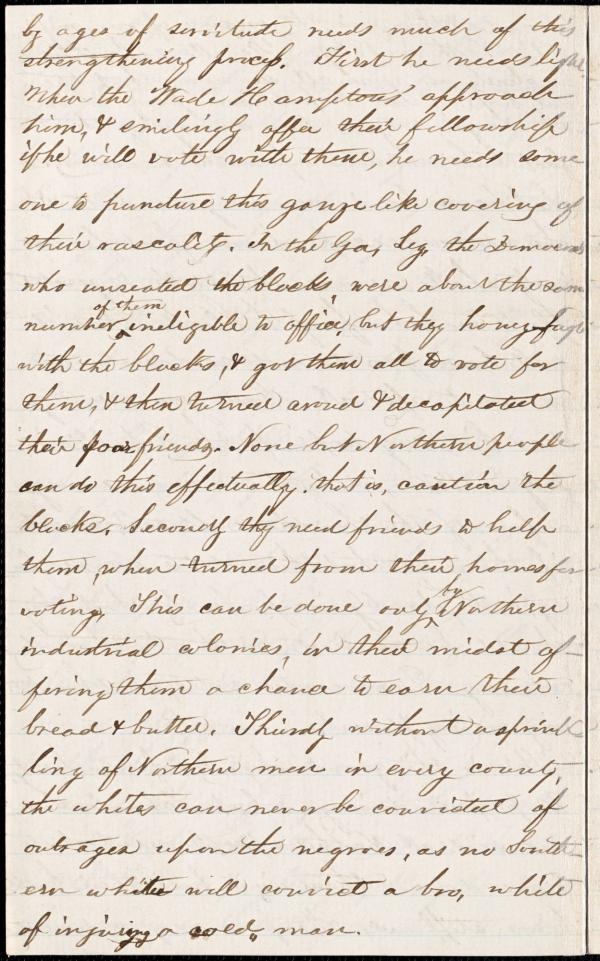 by ages of servitude needs much of this
strengthening process. First he needs light.
When the Wade Hamptons' approach
him, & smilingly offer their fellowship
if he will vote with them, he needs some
one to puncture this gauze like covering of
their rascality. In the Ga, Leg, the Democrats
who unseated the blacks, were about the same
number of them ineligible to office, but they honey fugle
with the blacks, & got them all to vote for
them, & then turned aroud & decapitated
their poor friends. None but Northern people
can do this effectually, that is, caution the
blacks. Secondly they need friends to help
them, when turned from their homes for
voting, This can be done only by Northern
industrial colonies, in their midst of-
fering them a chance to earn their
bread & butter. Thirdly without a sprink
ling of Northern men in every county,
the whites can never be convicted of
outrages upon the negroes, as no South-
ern white will convict a bro, white
of injuring a cold, man.